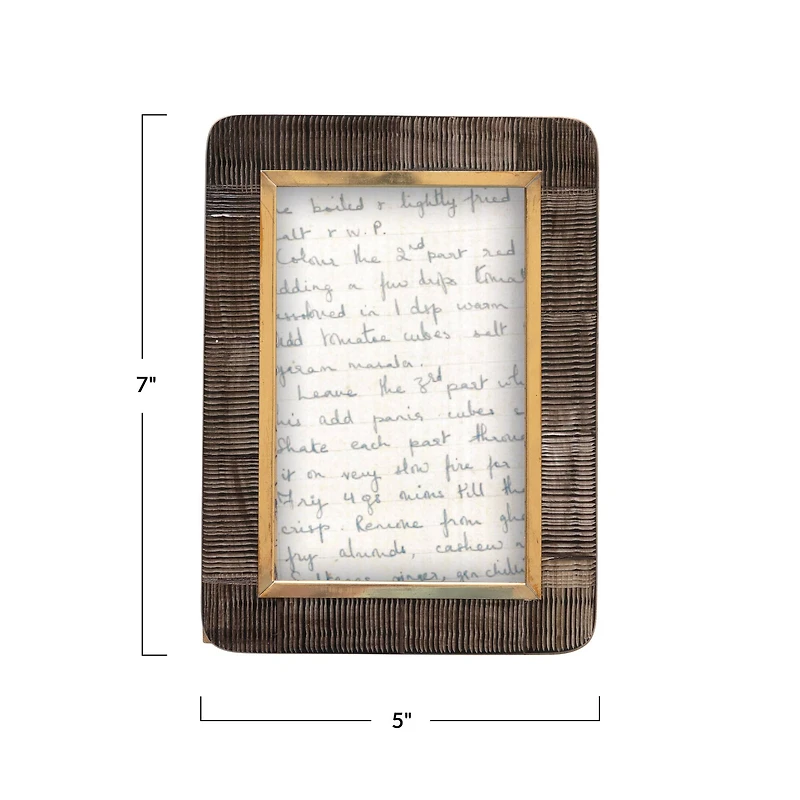 boiled & lightly fried
alt & W. P.
Colour the 2nd part red
dding a few drops tomat
ssolved in 1 dsp warm
dd tomatoe cubes salt
garam masala.
Leave the 3rd part wh
his add panir cubes
Shake each part throu
it on very slow fire for
Fry 4 mins till the
crisp. Remove from ghe
fry almonds, cashew n
ginger, grn chilli
7"
5"